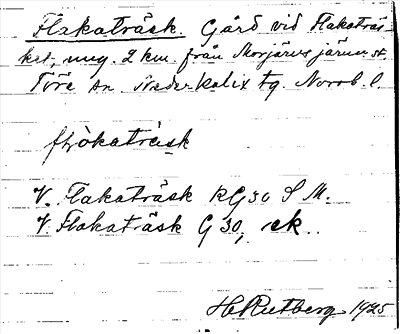 Flakaträsk. Gård vid Flakaträs
ket, ung. 2 km. från Morjärvs järnv. st.
Töre sn. Neder-Kalix tg. Norrb. l.
flὰkaträsk
V. Flakaträsk RG 30 S M.
V. Flakaträsk G 30, ek.
H Rutberg 1925